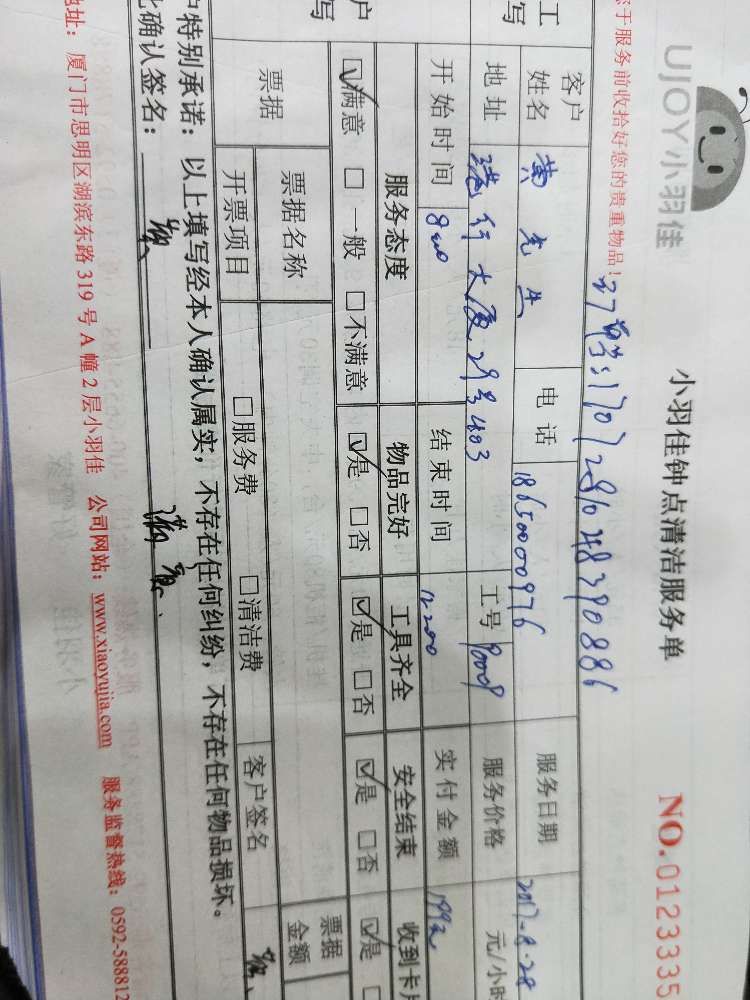 UJOY小羽佳
小羽佳钟点清洁服务单
NO.0123335
您于服务前收拾好您的贵重物品！
客户姓名 黄先生 电话 18650000976 服务日期 2017-8-28
地址 29号403 工号 90009 服务价格 元/小时
开始时间 8:00 结束时间 12:00 实付金额
服务态度 物品完好 工具齐全 安全结束 收到卡片
☑满意 □一般 □不满意 ☑是 □否 ☑是 □否 ☑是 □否 ☑是 □
票据 票据名称 票据金额
开票项目 □服务费 □清洁费 客户签名
户特别承诺：以上填写经本人确认属实，不存在任何纠纷，不存在任何物品损坏。
此确认签名：
地址：厦门市思明区湖滨东路319号A幢2层小羽佳 公司网站：www.xiaoyujia.com 服务监督热线：0592-588812